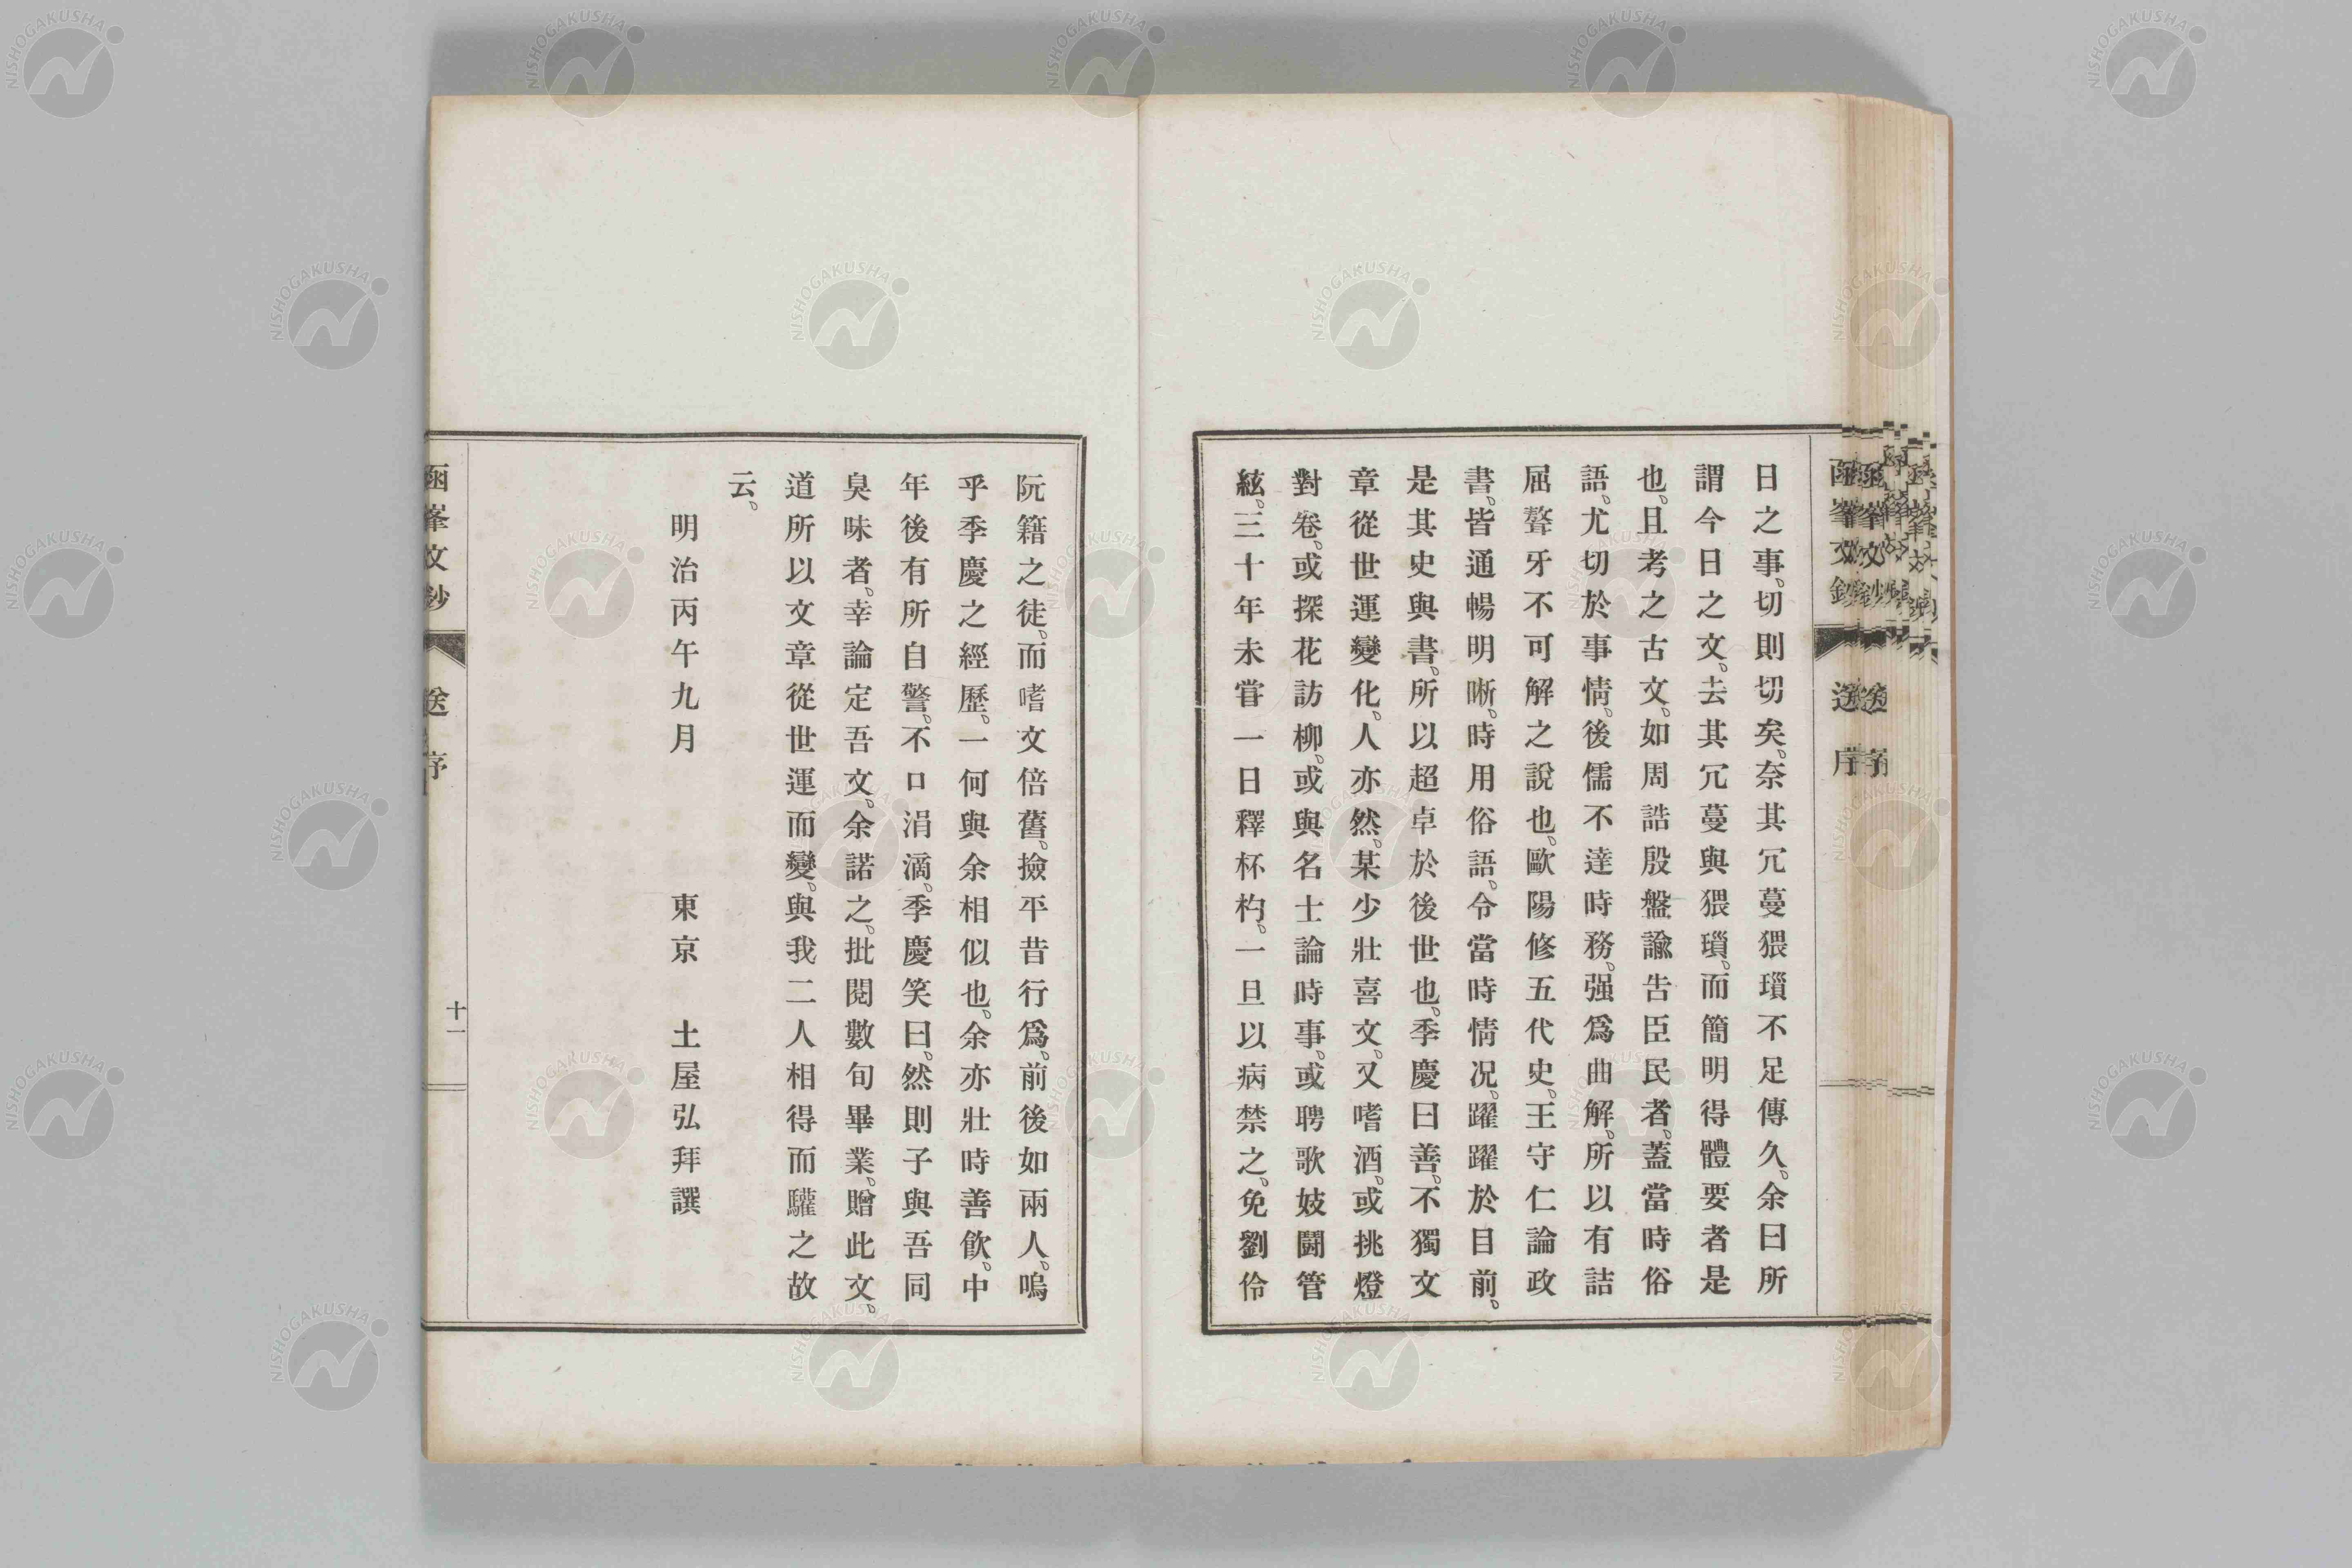 日之事。切則切矣。奈其冗蔓猥瑣不足傳久。余曰所
謂今日之文。去其冗蔓與猥瑣。而簡明得體要者是
也。且考之古文。如周誥殷盤諭告臣民者。蓋當時俗
語。尤切於事情。後儒不達時務。强爲曲解。所以有詰
屈聱牙不可解之說也。歐陽修五代史。王守仁論政
書。皆通暢明晰。時用俗語。令當時情况。躍躍於目前。
是其史與書。所以超卓於後世也。季慶曰善。不獨文
章從世運變化。人亦然。某少壯喜文。又嗜酒。或挑燈
對卷。或探花訪柳。或與名士論時事。或聘歌妓鬪管
絃。三十年未甞一日釋杯杓。一旦以病禁之。免劉伶
阮籍之徒。而嗜文倍舊。撿平昔行爲。前後如兩人。嗚
乎季慶之經歷。一何與余相似也。余亦壯時善飮。中
年後有所自警。不口涓滴。季慶笑曰。然則子與吾同
臭味者。幸論定吾文。余諾之。批閱數旬畢業。贈此文。
道所以文章從世運而變。與我二人相得而驩之故
云。
明治丙午九月　　　東京　土屋弘拜譔
函峯文鈔　送序　十一
NISHOGAKUSHA